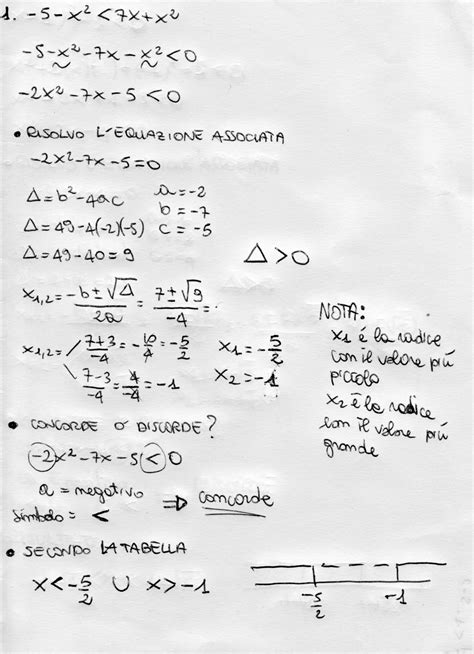 1. -5-x² < 7x+x²
-5-x²-7x-x² < 0
-2x²-7x-5 < 0
• RISOLVO L'EQUAZIONE ASSOCIATA
-2x²-7x-5=0
Δ=b²-4ac
a=-2
b=-7
c=-5
Δ=49-4(-2)(-5)
Δ=49-40=9
Δ>0
x1,2=-b±√Δ/2a=7±√9/-4=
x1,2=
7+3/-4=-10/4=-5/2
7-3/-4=4/-4=-1
x1=-5/2
x2=-1
NOTA:
x1 è la radice
con il valore più
piccolo
x2 è la radice
con il valore più
grande
• CONCORDE O DISCORDE?
-2x²-7x-5<0
a = negativo
simbolo = <
⇒ concorde
• SECONDO LA TABELLA
x<-5/2 ∪ x>-1
-5/2 -1